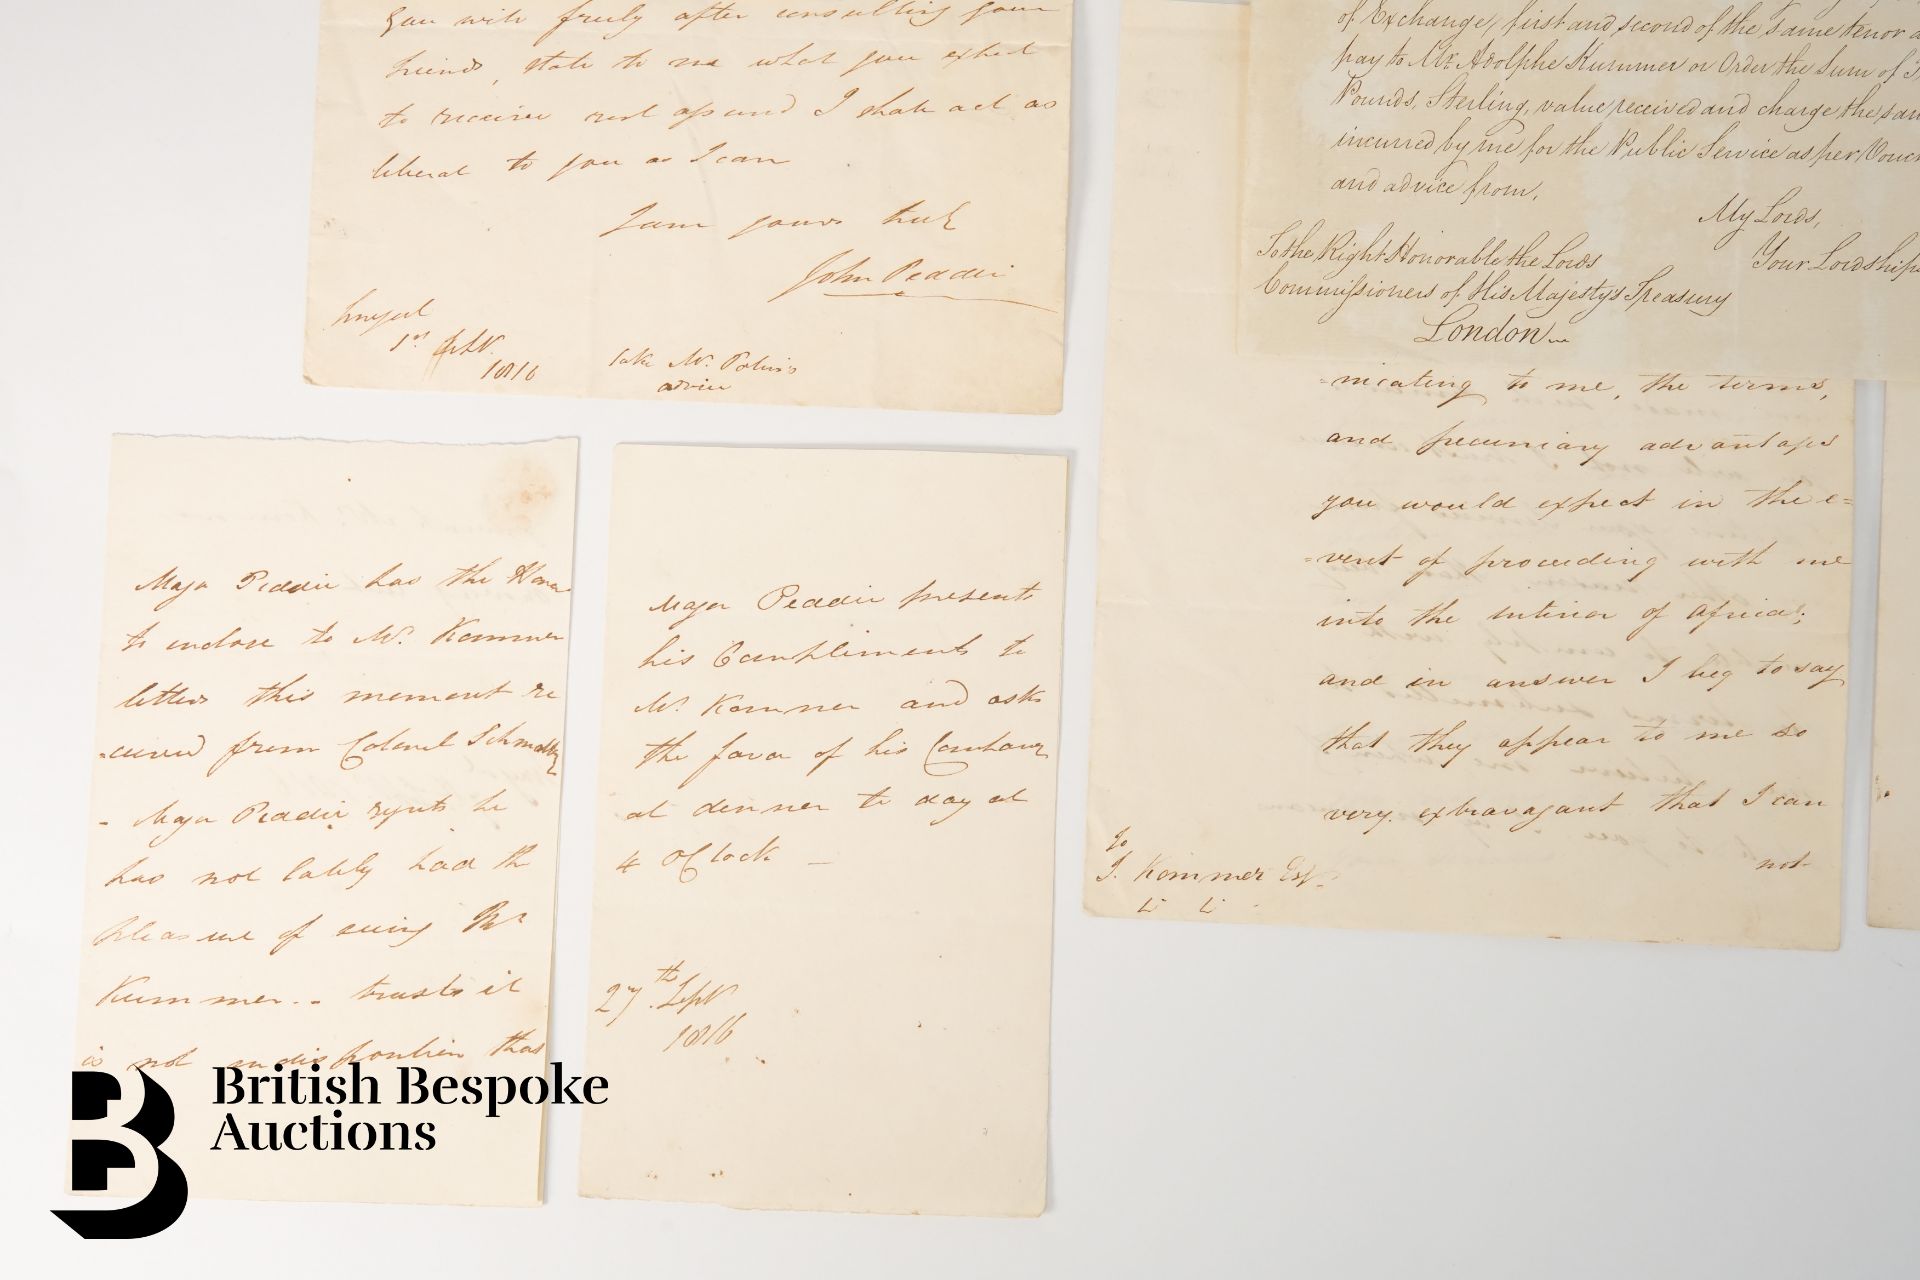 you will freely after consulting your
friends, state to me what you expect
to receive rest assured I shall act as
liberal to you as I can
I am yours truly
John Peddie
1st Septr.
1816
take Mr. Potin's
advice
of Exchange, first and second of the same tenor
pay to Mr. Adolphe Kummer or Order the Sum of
Pounds, Sterling, value received and charge the
incurred by me for the Public Service as per
and advice from,
My Lords,
Your Lordships
To the Right Honorable the Lords
Commissioners of His Majesty's Treasury
London
=nicating to me, the terms,
and pecuniary advantages
you would expect in the e=
=vent of proceeding with me
into the interior of Africa;
and in answer I beg to say
that they appear to me so
very extravagant that I can
not
To
J. Kommer Esqr.
Major Peddie has the Honor
to enclose to Mr. Kommer
letters this moment re
=ceived from Colonel
- Major Peddie regrets he
has not lately had the
pleasure of seeing Mr
Kummer - trusts it
is not indisposition that
Major Peddie presents
his Compliments to
Mr. Kommer and asks
the favor of his Company
at dinner to day at
4 OClock -
27th Septr
1816
British Bespoke
Auctions